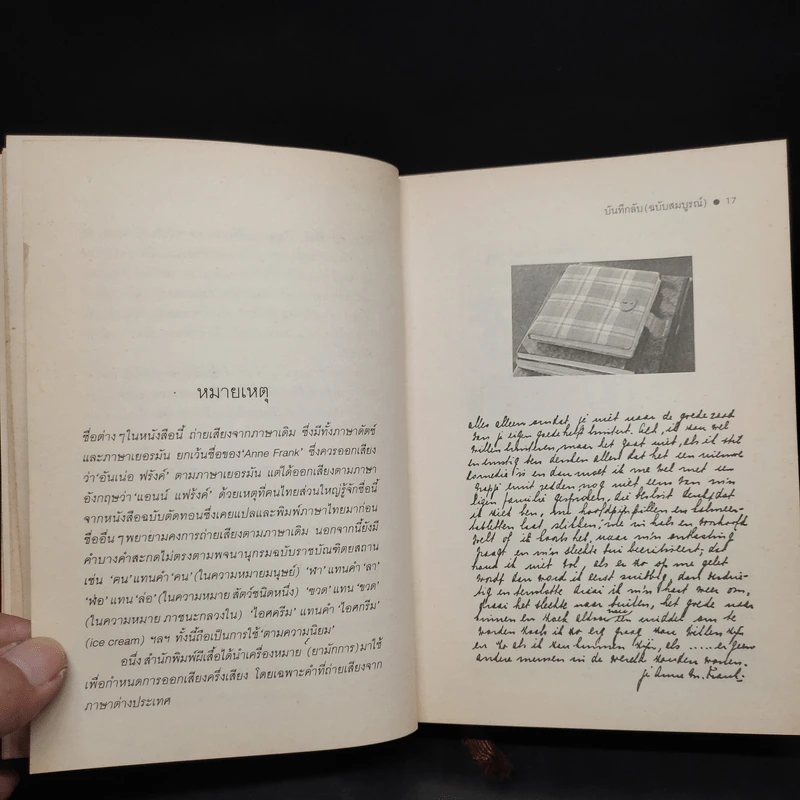 หมายเหตุ
ชื่อต่าง ๆ ในหนังสือนี้ ถ่ายเสียงจากภาษาเดิม ซึ่งมีทั้งภาษาดัตช์
และภาษาเยอรมัน ยกเว้นชื่อของ 'Anne Frank' ซึ่งควรออกเสียง
ว่า 'อันเน่อ ฟรังค์' ตามภาษาเยอรมัน แต่ได้ออกเสียงตามภาษา
อังกฤษว่า 'แอนน์ แฟร้งค์' ด้วยเหตุที่คนไทยส่วนใหญ่รู้จักชื่อนี้
จากหนังสือฉบับตัดทอนซึ่งเคยแปลและพิมพ์ภาษาไทยมาก่อน
ชื่ออื่น ๆ พยายามคงการถ่ายเสียงตามภาษาเดิม นอกจากนี้ยังมี
คำบางคำสะกดไม่ตรงตามพจนานุกรมฉบับราชบัณฑิตยสถาน
เช่น แทนคำ 'คน' (ในความหมายมนุษย์) แทนคำ 'ลา'
แทน 'ล่อ' (ในความหมาย สัตว์ชนิดหนึ่ง) แทน 'ขวด'
(ในความหมาย ภาชนะกลวงใน) 'ไอศครีม' แทนคำ 'ไอศกรีม'
(ice cream) ฯลฯ ทั้งนี้ถือเป็นการใช้ 'ตามความนิยม'
อนึ่ง สำนักพิมพ์ผีเสื้อได้นำเครื่องหมาย (ยามักการ) มาใช้
เพื่อกำหนดการออกเสียงครึ่งเสียง โดยเฉพาะคำที่ถ่ายเสียงจาก
ภาษาต่างประเทศ
บันทึกลับ (ฉบับสมบูรณ์) ● 17
alles alleen omdat je niet naar de goede raad
van je eigen goede helft luistert. Och, ik wil wel
luisteren, maar het gaat niet, als ik stil
en ernstig ben denken allen dat het een nieuwe
comedie is en dan moet ik me wel met een
grapje eruit redden nog niet eens van m'n
eigen familie gesproken, die beslist denkt dat
ik ziek ben, me hoofdpijnpillen en kalmeer-
tabletten laat slikken, me in hals en voorhoofd
voelt of ik koorts heb, naar m'n ontlasting
vraagt en m'n slechte bui becritiseert, dat
houd ik niet vol, als er zo op me gelet
wordt dan word ik eerst snibbig, dan verdrie-
tig en tenslotte draai ik m'n hart weer om,
draai het slechte naar buiten, het goede naar
binnen en zoek aldoor naar een middel om te
worden zoals ik zo erg graag zou willen zijn
en zo als ik zou kunnen zijn, als ..... er geen
andere mensen in de wereld zouden wonen.
je Anne M. Frank.